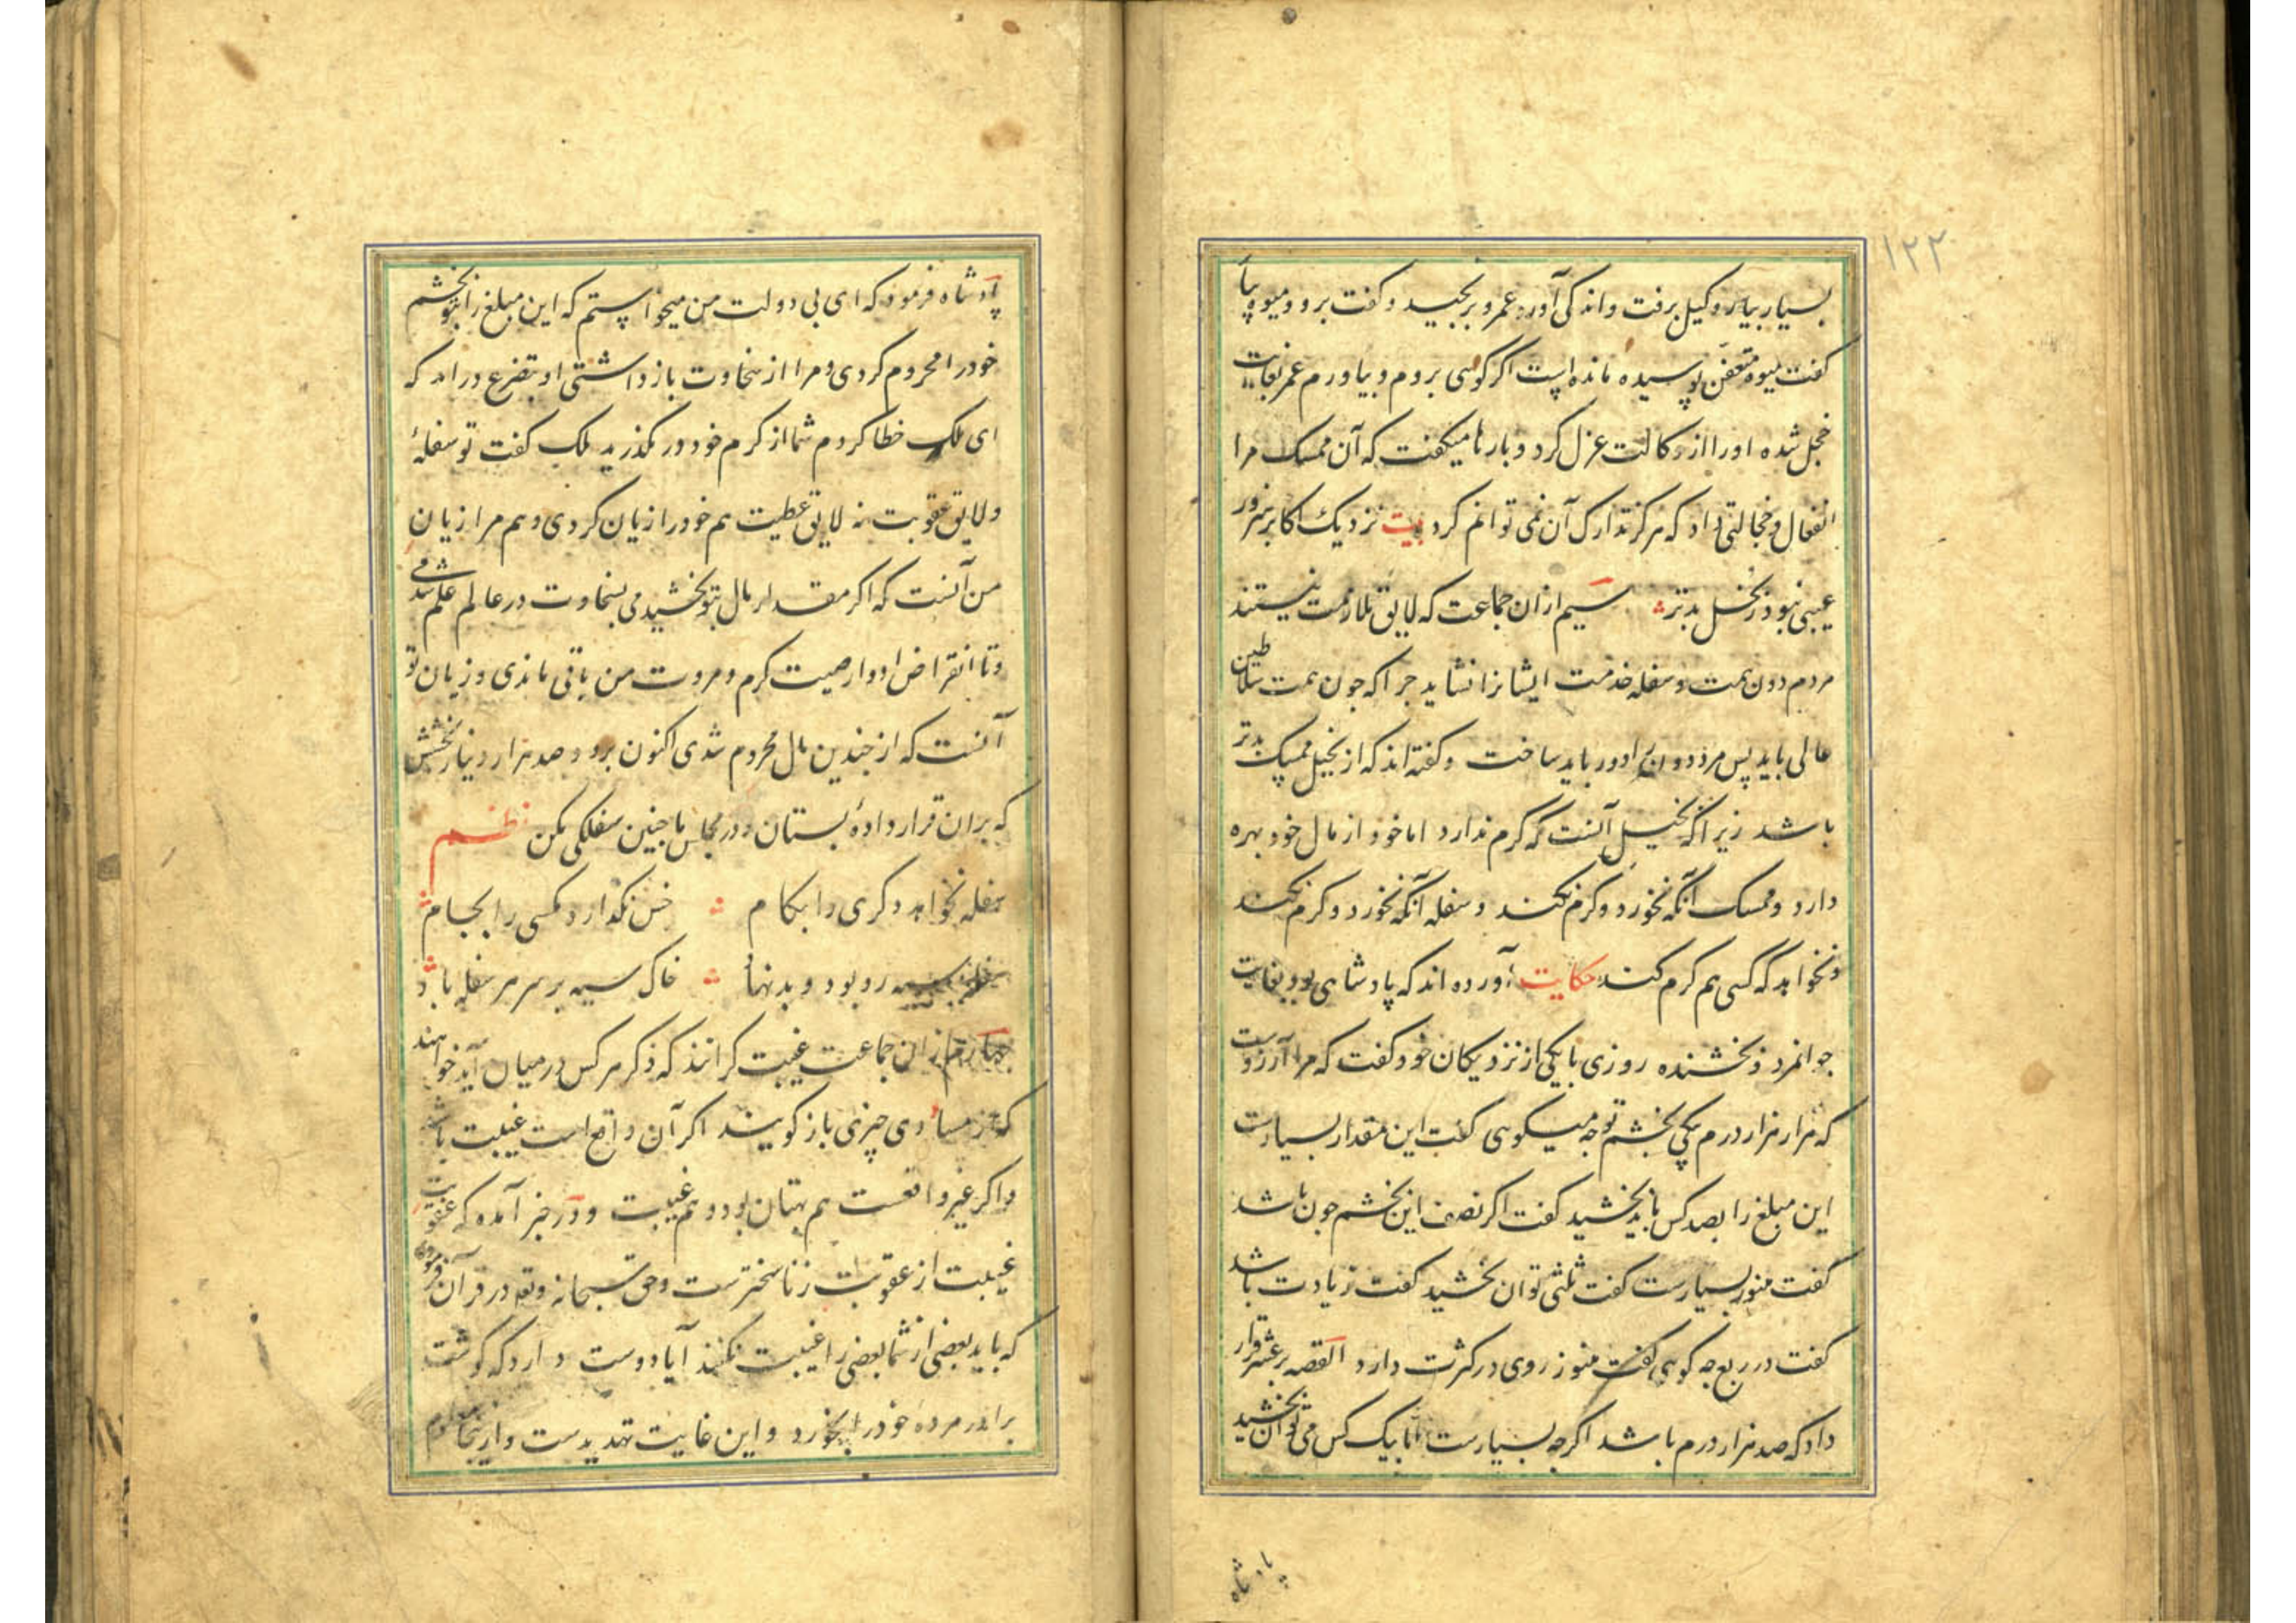 ۱۲۲
بسیار بیار وکیل برفت و اندکی آورد عمرو برنجید و گفت برو و میوه بیار
گفت میوه متعفن پوسیده مانده است اگر گوئی بروم و بیاورم عمر بغایت
خجل شده او را از وکالت عزل کرد و بارها میکفت که آن ممسک مرا
انفعال و خجالتی داد که هرکز تدارک آن نمی توانم کرد بیت نزدیک اکابر هنرور
عیبی نبود ز بخل بدتر سیم ازان جماعت که لایق ملازمت نیستند
مردم دون همت و سفله خدمت ایشانرا نشاید جرا که جون همت سلاطین
عالی باید پس مرد دون را دور باید ساخت و کفته اند که از بخیل ممسک بدتر
باشد زیرا که بخیل آنست که کرم ندارد اما خود از مال خود بهره
دارد و ممسک آنکه نخورد و کرم نکند و سفله آنکه نخورد و کرم نکند
و نخواهد که کسی هم کرم کند حکایت آورده اند که پادشاهی بود بغایت
جوانمرد و بخشنده روزی با یکی از نزدیکان خود کفت که مرا آرزوست
که هزار هزار درم بیکی بخشم تو جه میکوئی کفت این مقدار بسیارست
این مبلغ را بصد کس باید بخشید کفت اکر نصف این بخشم جون باشد
کفت هنوز بسیارست کفت ثلثی توان بخشید کفت زیادت باشد
کفت در ربع جه کوئی کفت هنوز روی در کثرت دارد القصه بر عشر قرار
داد که صد هزار درم باشد اکرجه بسیارست اما بیک کس می توان بخشید
پادشاه
پادشاه فرمود که ای بی دولت من میخواستم که این مبلغ را بتو بخشم
خود را محروم کردی و مرا از سخاوت باز داشتی او بتضرع درامد که
ای ملک خطا کردم شما از کرم خود در نکذرید ملک کفت تو سفلهٔ
و لایق عقوبت نه لایق عطیت هم خود را زیان کردی و هم مرا زیان
من آنست که اکر مقدار مال بتو بخشیدمی بسخاوت در عالم علم شدمی
و تا انقراض ادوار صیت کرم و مروت من باقی ماندی و زیان تو
آنست که از جندین مال محروم شدی اکنون برو و صد هزار دینار بخشش
که بران قرار دادهٔ بستان و در مجلس ما جنین سفلکی مکن نظم
سفله نخواهد دکری را بکام خس نکذارد مکسی را بجام
سفله سیه رو بود و بدنهاد خاک سیه بر سر هر سفله باد
جهارم ازان جماعت غیبت کرانند که ذکر هر کس در میان آید خواهند
که از مساوی چیزی باز کویند اکر آن واقع است غیبت باشد
و اکر غیر واقعست هم بهتان بود و هم غیبت و در خبر آمده که عقوبت
غیبت از عقوبت زنا سختر ست و حق سبحانه وتع در قرآن فرموده
که باید بعضی از شما بعضی را غیبت نکنند آیا دوست دارد که کوشت
برادر مردهٔ خود را بخورد و این غایت تهدیدست و ازینجا معلوم